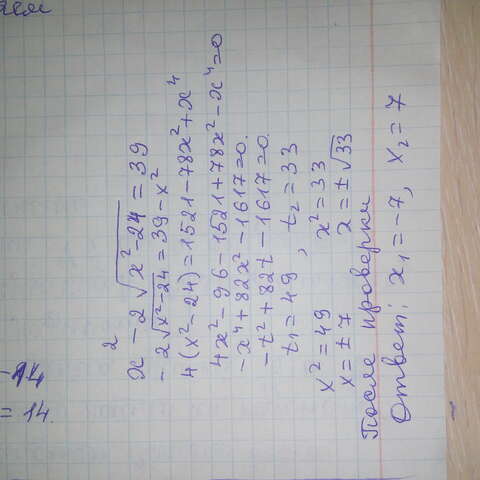 -14
= 14.
x² - 2 √(x² - 24) = 39
- 2√(x² - 24) = 39 - x²
4(x² - 24) = 1521 - 78x² + x⁴
4x² - 96 - 1521 + 78x² - x⁴ = 0
- x⁴ + 82x² - 1617 = 0.
- t² + 82t - 1617 = 0.
t₁ = 49 , t₂ = 33
x² = 49 x² = 33
x = ± 7 x = ± √33
После проверки
Ответ: x₁ = -7, x₂ = 7